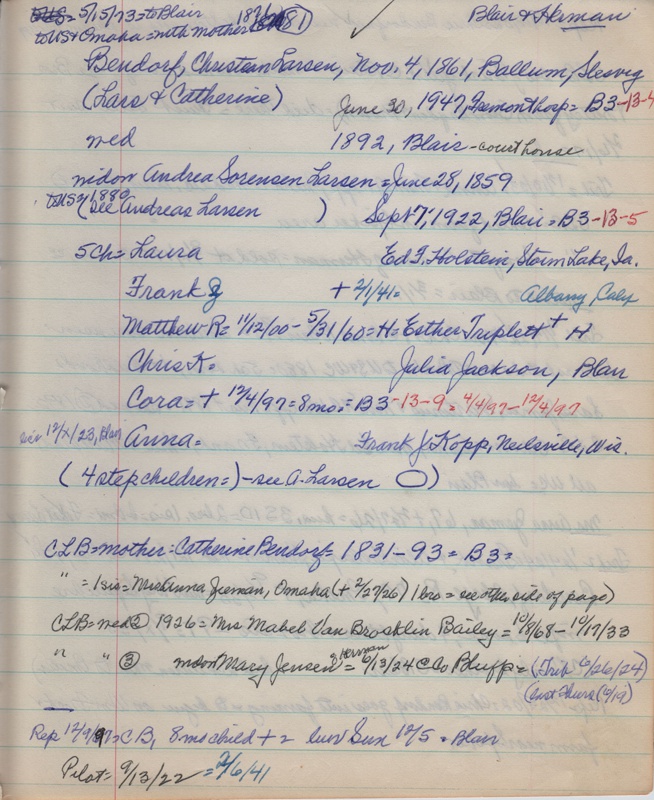 5/15/73 = to Blair 1871
to US & Omaha = with mother (81)
Blair & Herman
Bendorf, Christian Larsen, Nov. 4, 1861, Ballum, Slesvig
(Lars & Catherine) June 30, 1947, Fremont hosp = B3-13-4
med 1892, Blair - courthouse
midon Andrea Sorensen Larsen = June 28, 1859
to US = 1880
(see Andreas Larsen ) Sept 7, 1922, Blair = B3-13-5
5 Ch = Laura Ed F. Holstein, Storm Lake, Ia.
Frank + 2/1/41 = Albany, Calif
Matthew R = 11/12/00 - 5/31/60 = H = Esther Triplett + H
Chris K = Julia Jackson, Blair
Cora = + 12/4/97 = 8 mo. = B3-13-9 = 4/4/97 - 12/4/97
12/X/23, Blair Anna = Frank J. Kopp, Neilsville, Wis.
(4 stepchildren =) - see A. Larsen )
CLB = mother: Catherine Bendorf = 1831 - 93 = B3 =
" = 1 sis = Mrs Anna Jieman, Omaha (+ 2/27/26) 1 bro = see other side of page)
CLB = med ② 1926 = Mrs Mabel Van Brocklin Bailey = 10/8/68 - 10/17/33
" " ③ midon Mary Jensen g Herman = 6/13/24 C Co Bluff = (Trib 6/26/24)
(Ent Thurs (6/19)
Rep 12/9/97 = CB, 8 mo child + = Sun 12/5 = Blair
Pilot = 9/13/22 = 2/6/41